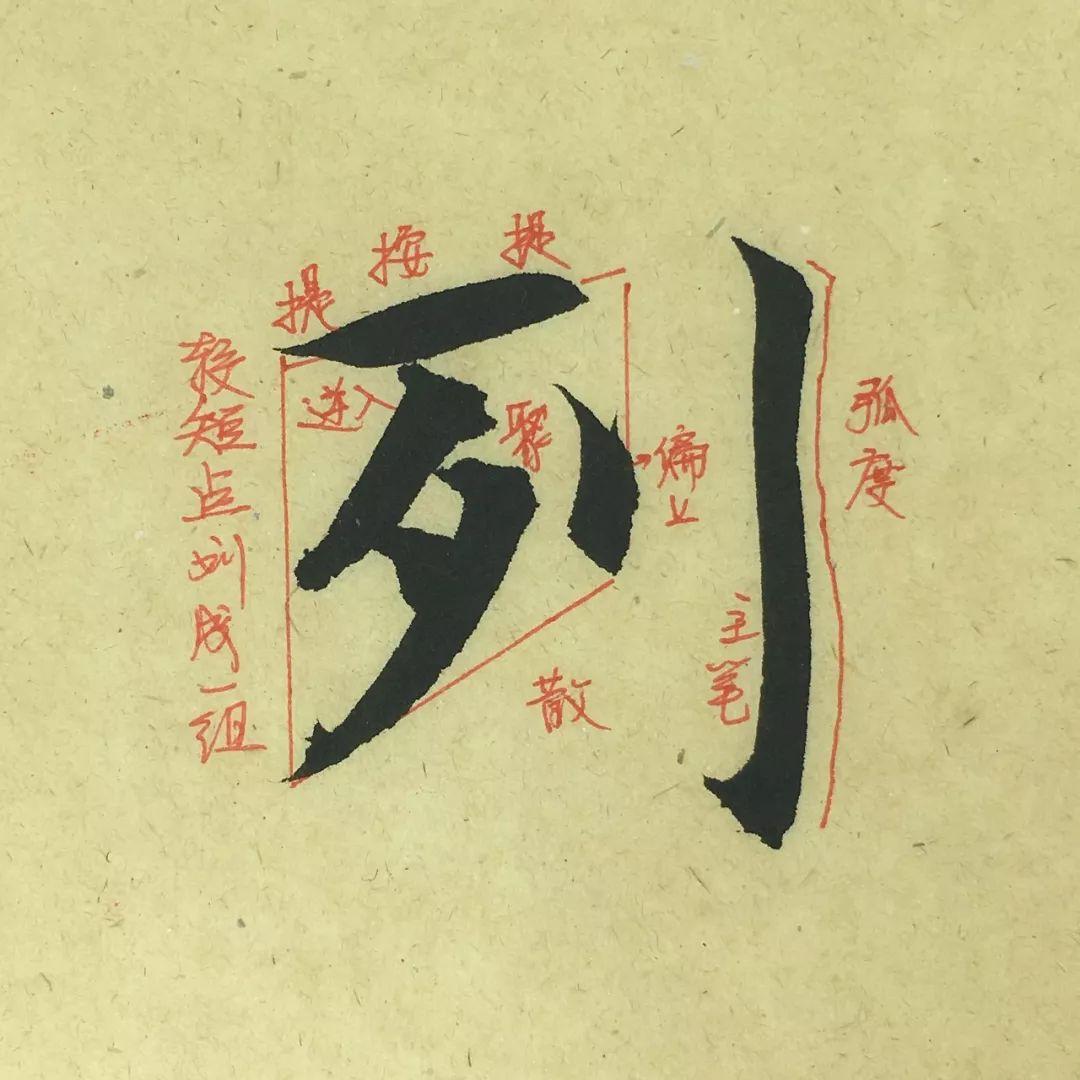 列
提 按 提
较短点划成一组
进入
聚
偏上
弧度
主笔
散